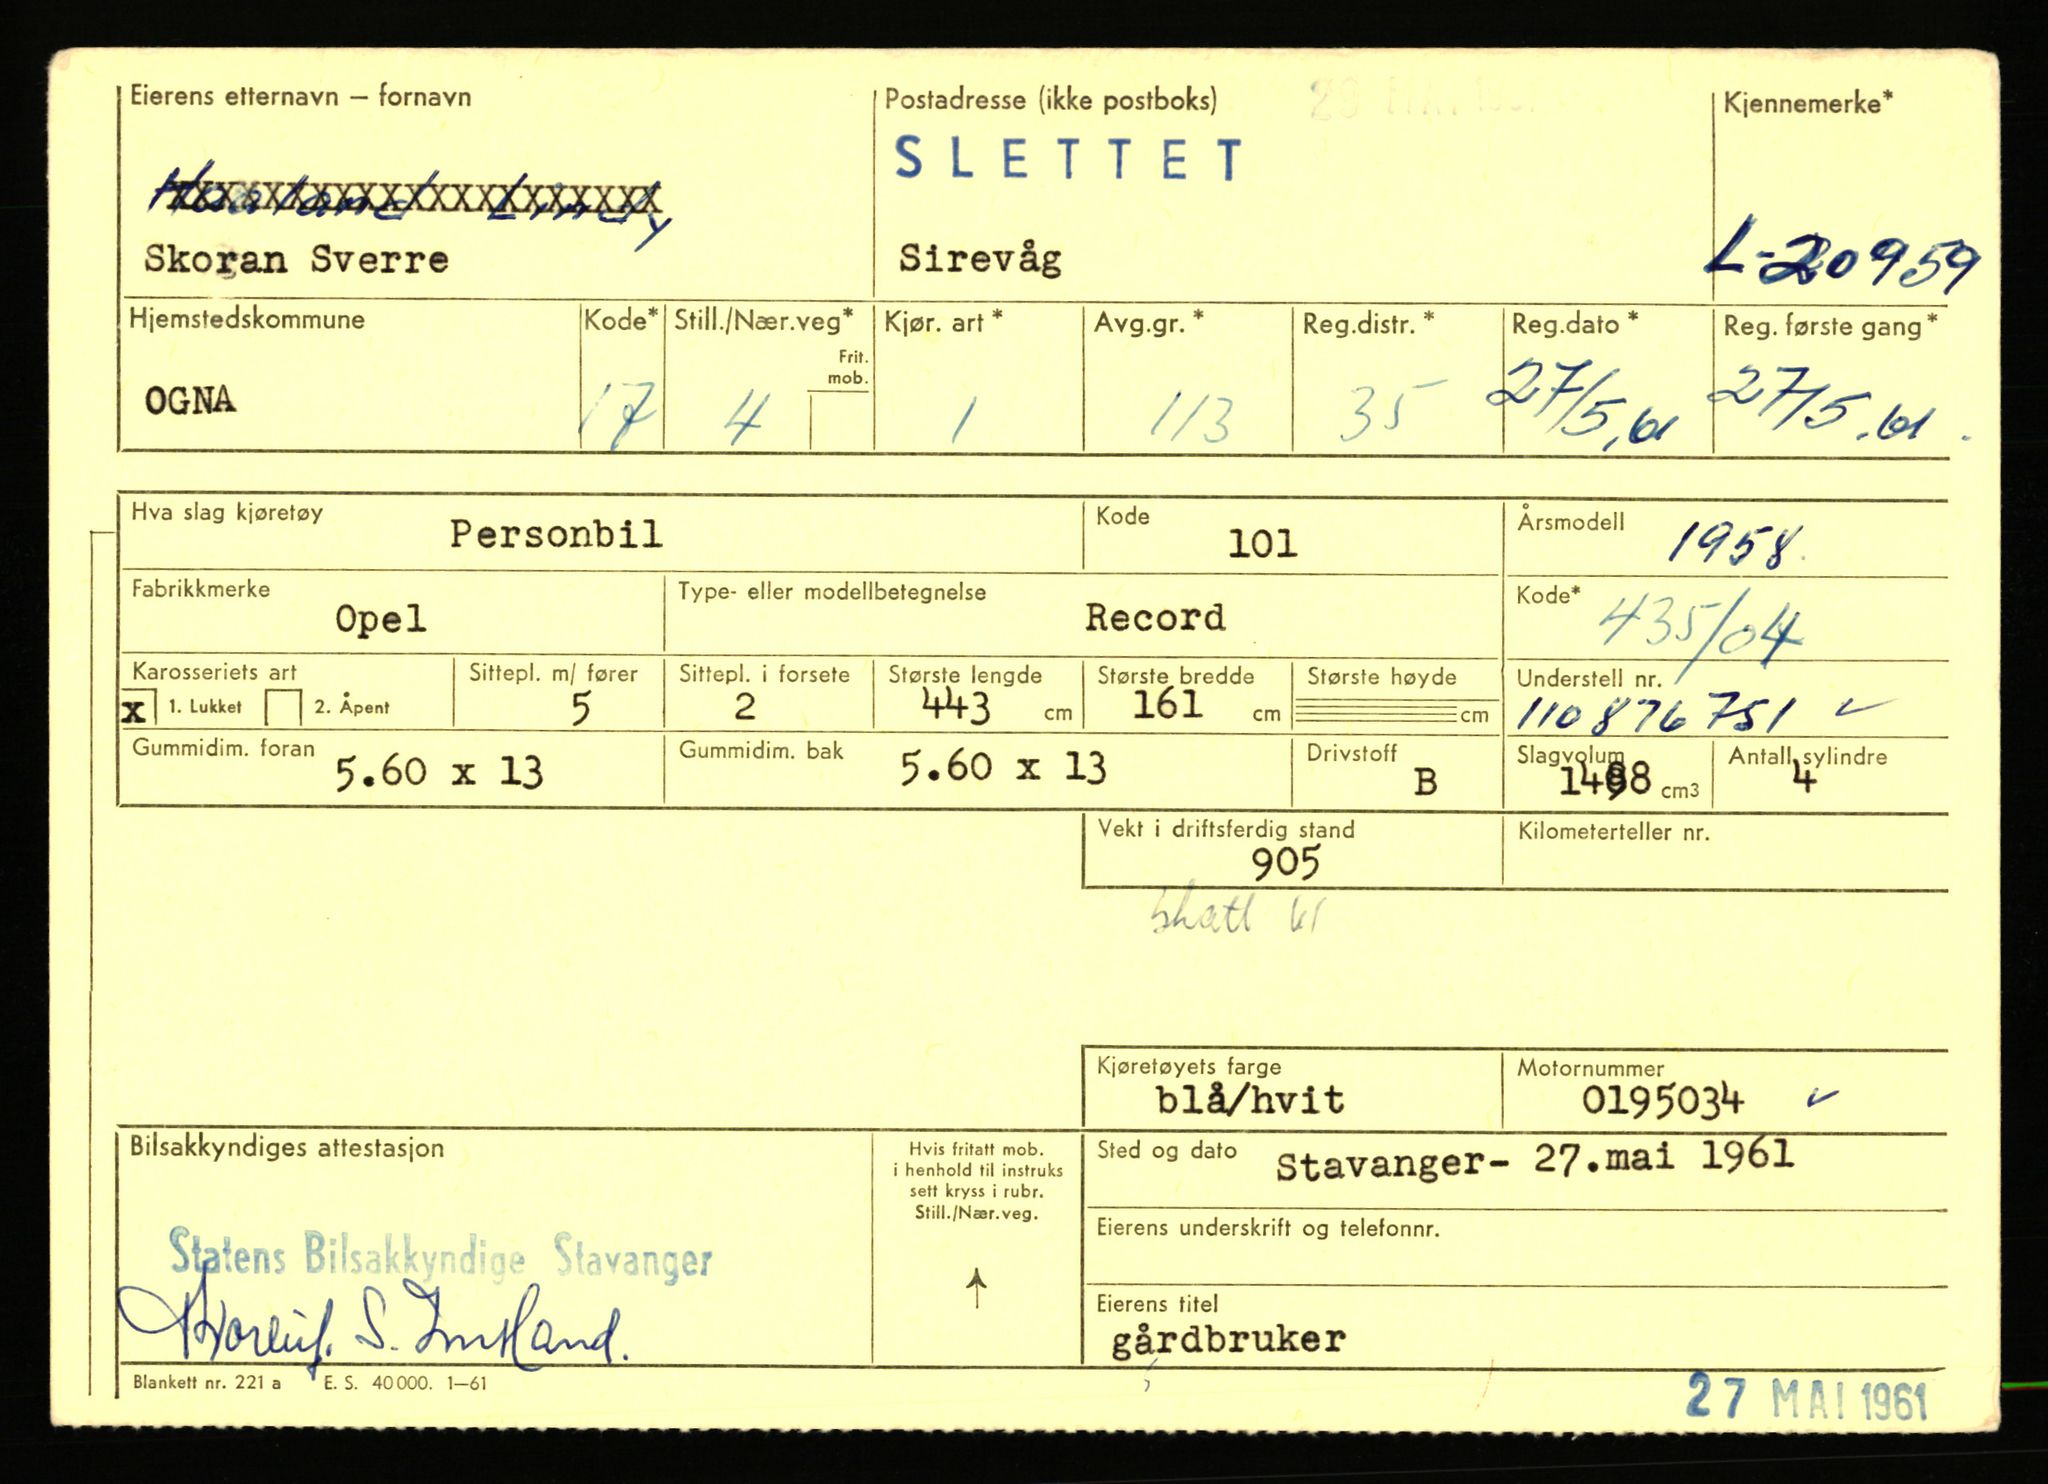 Eierens etternavn – fornavn Postadresse (ikke postboks) Kjennemerke*
SLETTET
Skoran Sverre Sirevåg L-20959
Hjemstedskommune Kode* Still./Nær.veg* Kjør. art* Avg.gr.* Reg.distr.* Reg.dato* Reg. første gang*
Frit.
mob.
OGNA 17 4 1 113 35 27/5.61 27/5.61.
Hva slag kjøretøy Personbil Kode 101 Årsmodell 1958.
Fabrikkmerke Opel Type- eller modellbetegnelse Record Kode* 435/04
Karosseriets art Sittepl. m/ fører Sittepl. i forsete Største lengde Største bredde Største høyde Understell nr.
x 1. Lukket 2. Åpent 5 2 443 cm 161 cm cm 110876751
Gummidim. foran 5.60 x 13 Gummidim. bak 5.60 x 13 Drivstoff B Slagvolum 1488 cm3 Antall sylindre 4
Vekt i driftsferdig stand Kilometerteller nr.
905
skatt 61
Kjøretøyets farge Motornummer
blå/hvit 0195034
Bilsakkyndiges attestasjon
Hvis fritatt mob.
i henhold til instruks
sett kryss i rubr.
Still./Nær.veg.
Sted og dato Stavanger- 27.mai 1961
Eierens underskrift og telefonnr.
Statens Bilsakkyndige Stavanger
Eierens titel
gårdbruker
Blankett nr. 221 a E. S. 40 000. 1–61
27 MAI 1961